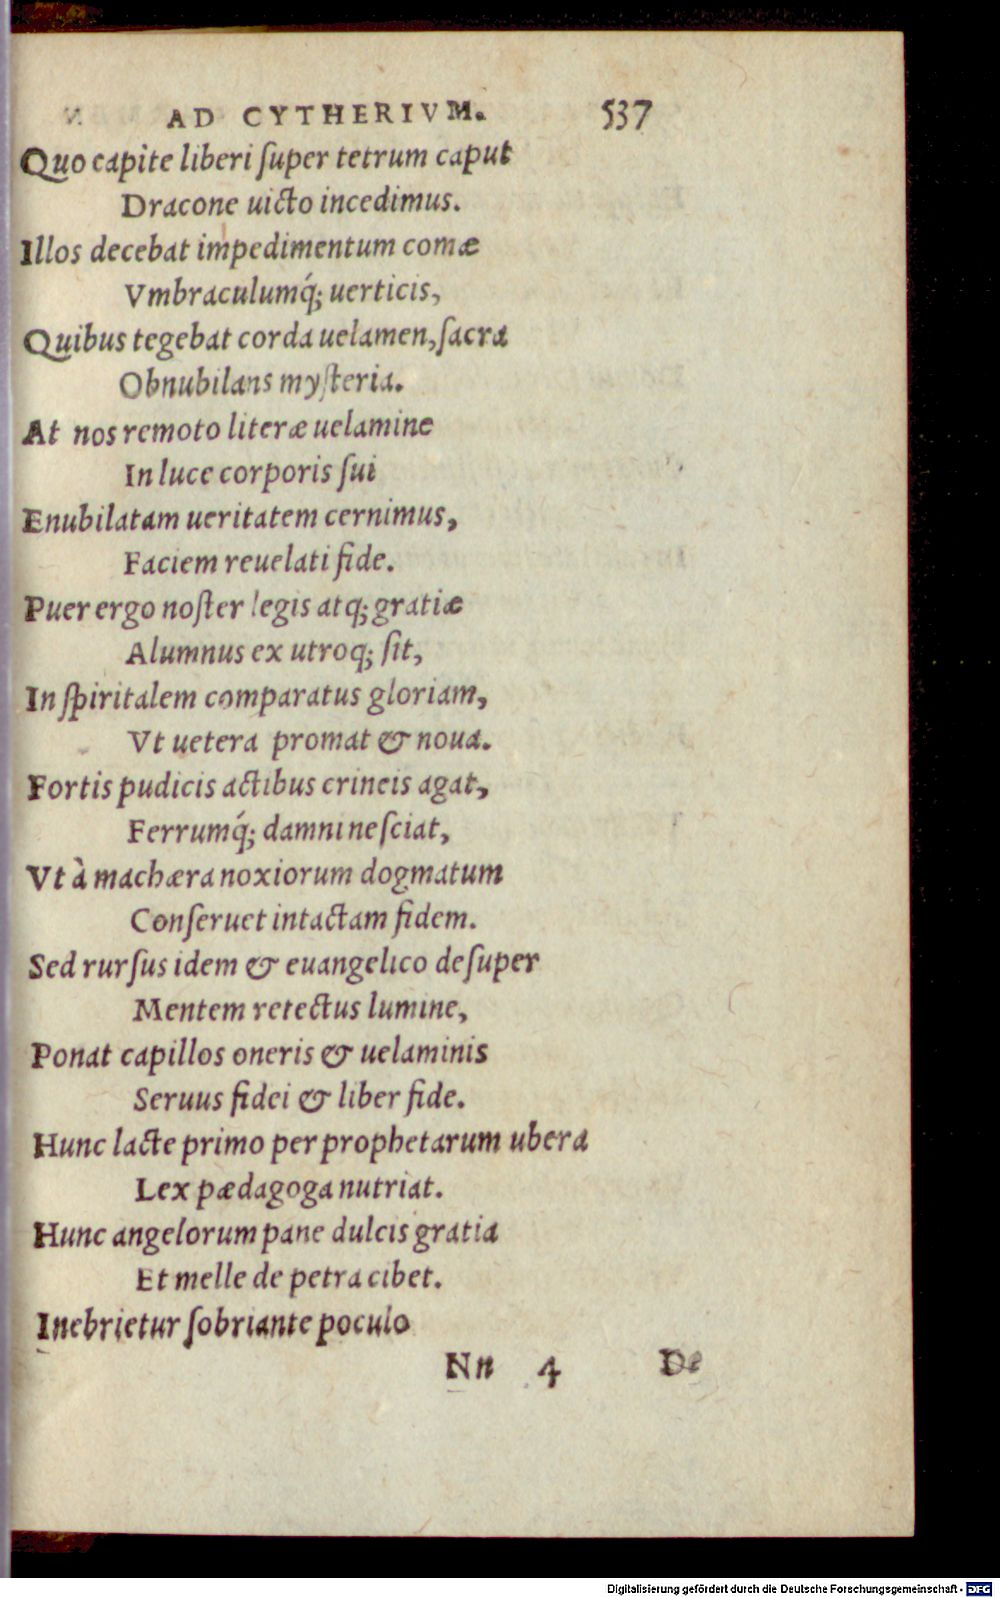 AD CYTHERIVM. 537
Quo capite liberi ſuper tetrum caput
Dracone uicto incedimus.
Illos decebat impedimentum comæ
Vmbraculumq́; uerticis,
Quibus tegebat corda uelamen, ſacra
Obnubilans myſteria.
At nos remoto literæ uelamine
In luce corporis ſui
Enubilatam ueritatem cernimus,
Faciem reuelati fide.
Puer ergo noſter legis atq; gratiæ
Alumnus ex utroq; ſit,
In ſpiritalem comparatus gloriam,
Vt uetera promat & noua.
Fortis pudicis actibus crineis agat,
Ferrumq́; damni neſciat,
Vt à machæra noxiorum dogmatum
Conſeruet intactam fidem.
Sed rurſus idem & euangelico deſuper
Mentem retectus lumine,
Ponat capillos oneris & uelaminis
Seruus fidei & liber fide.
Hunc lacte primo per prophetarum ubera
Lex pædagoga nutriat.
Hunc angelorum pane dulcis gratia
Et melle de petra cibet.
Inebrietur ſobriante poculo
Nn 4 De
Digitalisierung gefördert durch die Deutsche Forschungsgemeinschaft - DFG